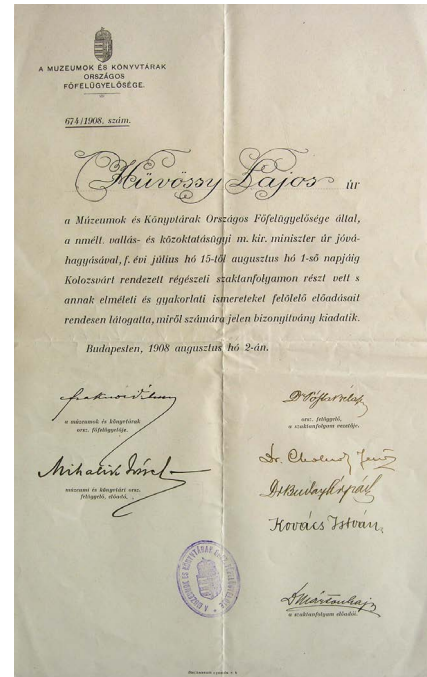 A MUZEUMOK ÉS KÖNYVTÁRAK
ORSZÁGOS
FŐFELÜGYELŐSÉGE.
674/1908. szám.
Hüvössy Lajos úr
a Múzeumok és Könyvtárak Országos Főfelügyelősége által,
a nmélt. vallás- és közoktatásügyi m. kir. miniszter úr jóvá-
hagyásával, f. évi július hó 15-től augusztus hó 1-ső napjáig
Kolozsvárt rendezett régészeti szaktanfolyamon részt vett s
annak elméleti és gyakorlati ismereteket felölelő előadásait
rendesen látogatta, miről számára jelen bizonyítvány kiadatik.
Budapesten, 1908 augusztus hó 2-án.
a múzeumok és könyvtárak
orsz. főfelügyelője.
Mihalik József
múzeumi és könyvtári orsz.
felügyelő, előadó.
Dr Pósta Béla
orsz. felügyelő,
a szaktanfolyam vezetője.
Dr. Cholnoky Jenő
Dr Buday Árpád
Kovács István
Dr Márton Lajos
a szaktanfolyam előadói.